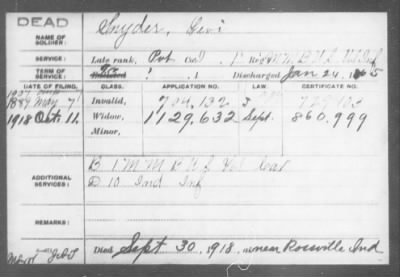 DEAD
NAME OF SOLDIER:
Snyder, Levi
SERVICE:
Late rank, Pvt Co. D,
TERM OF SERVICE:
Enlisted
Discharged Jan 24, 1865
DATE OF FILING.
CLASS.
APPLICATION NO.
LAW.
CERTIFICATE NO.
1889 May 7
Invalid,
704,132
1918 Oct. 11.
Widow,
1129,632
Sept.
860,999
Minor,
ADDITIONAL SERVICES:
B 1 M M B U S Vol
D 10 Ind Inf
REMARKS:
Died Sept 30, 1918, at near Rossville Ind